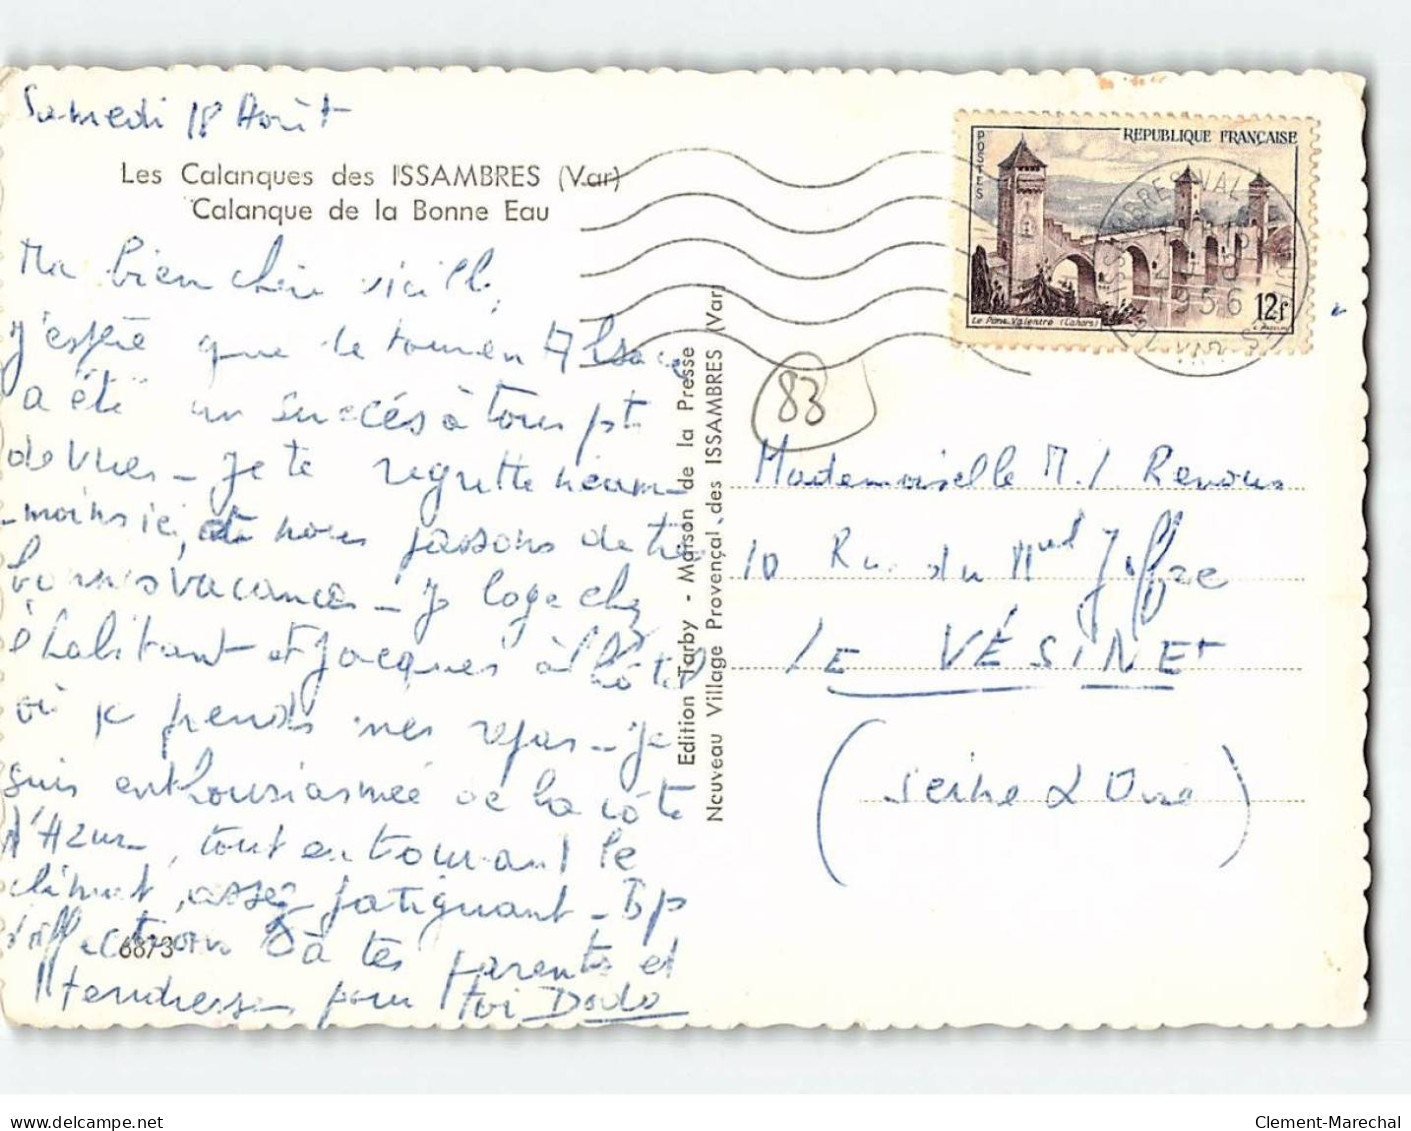 Samedi 18 Août
Les Calanques des ISSAMBRES (Var)
Calanque de la Bonne Eau
Ma bien chère vieille,
J'espère que le tour en Alsace
a été un succès à tous pts
de vues - Je te regrette néan-
-moins ici, et nous passons de très
bonnes vacances - Je loge chez
l'habitant et Jacques à l'hôtel
où je prends mes repas - Je
suis enthousiasmée de la côte
d'Azur, tout en trouvant le
climat, assez fatigant - Bp
d'affections à tes parents et
tendresses pour toi Dodo
6873
Edition Tarby - Maison de la Presse
Nouveau Village Provençal des ISSAMBRES (Var)
POSTES
REPUBLIQUE FRANÇAISE
Le Pont Valentré (Cahors)
12f
1956
83
Mademoiselle M. Renoux
10 Rue du Mal Joffre
LE VÉSINET
(Seine & Oise)
delcampe.net
Clement-Marechal